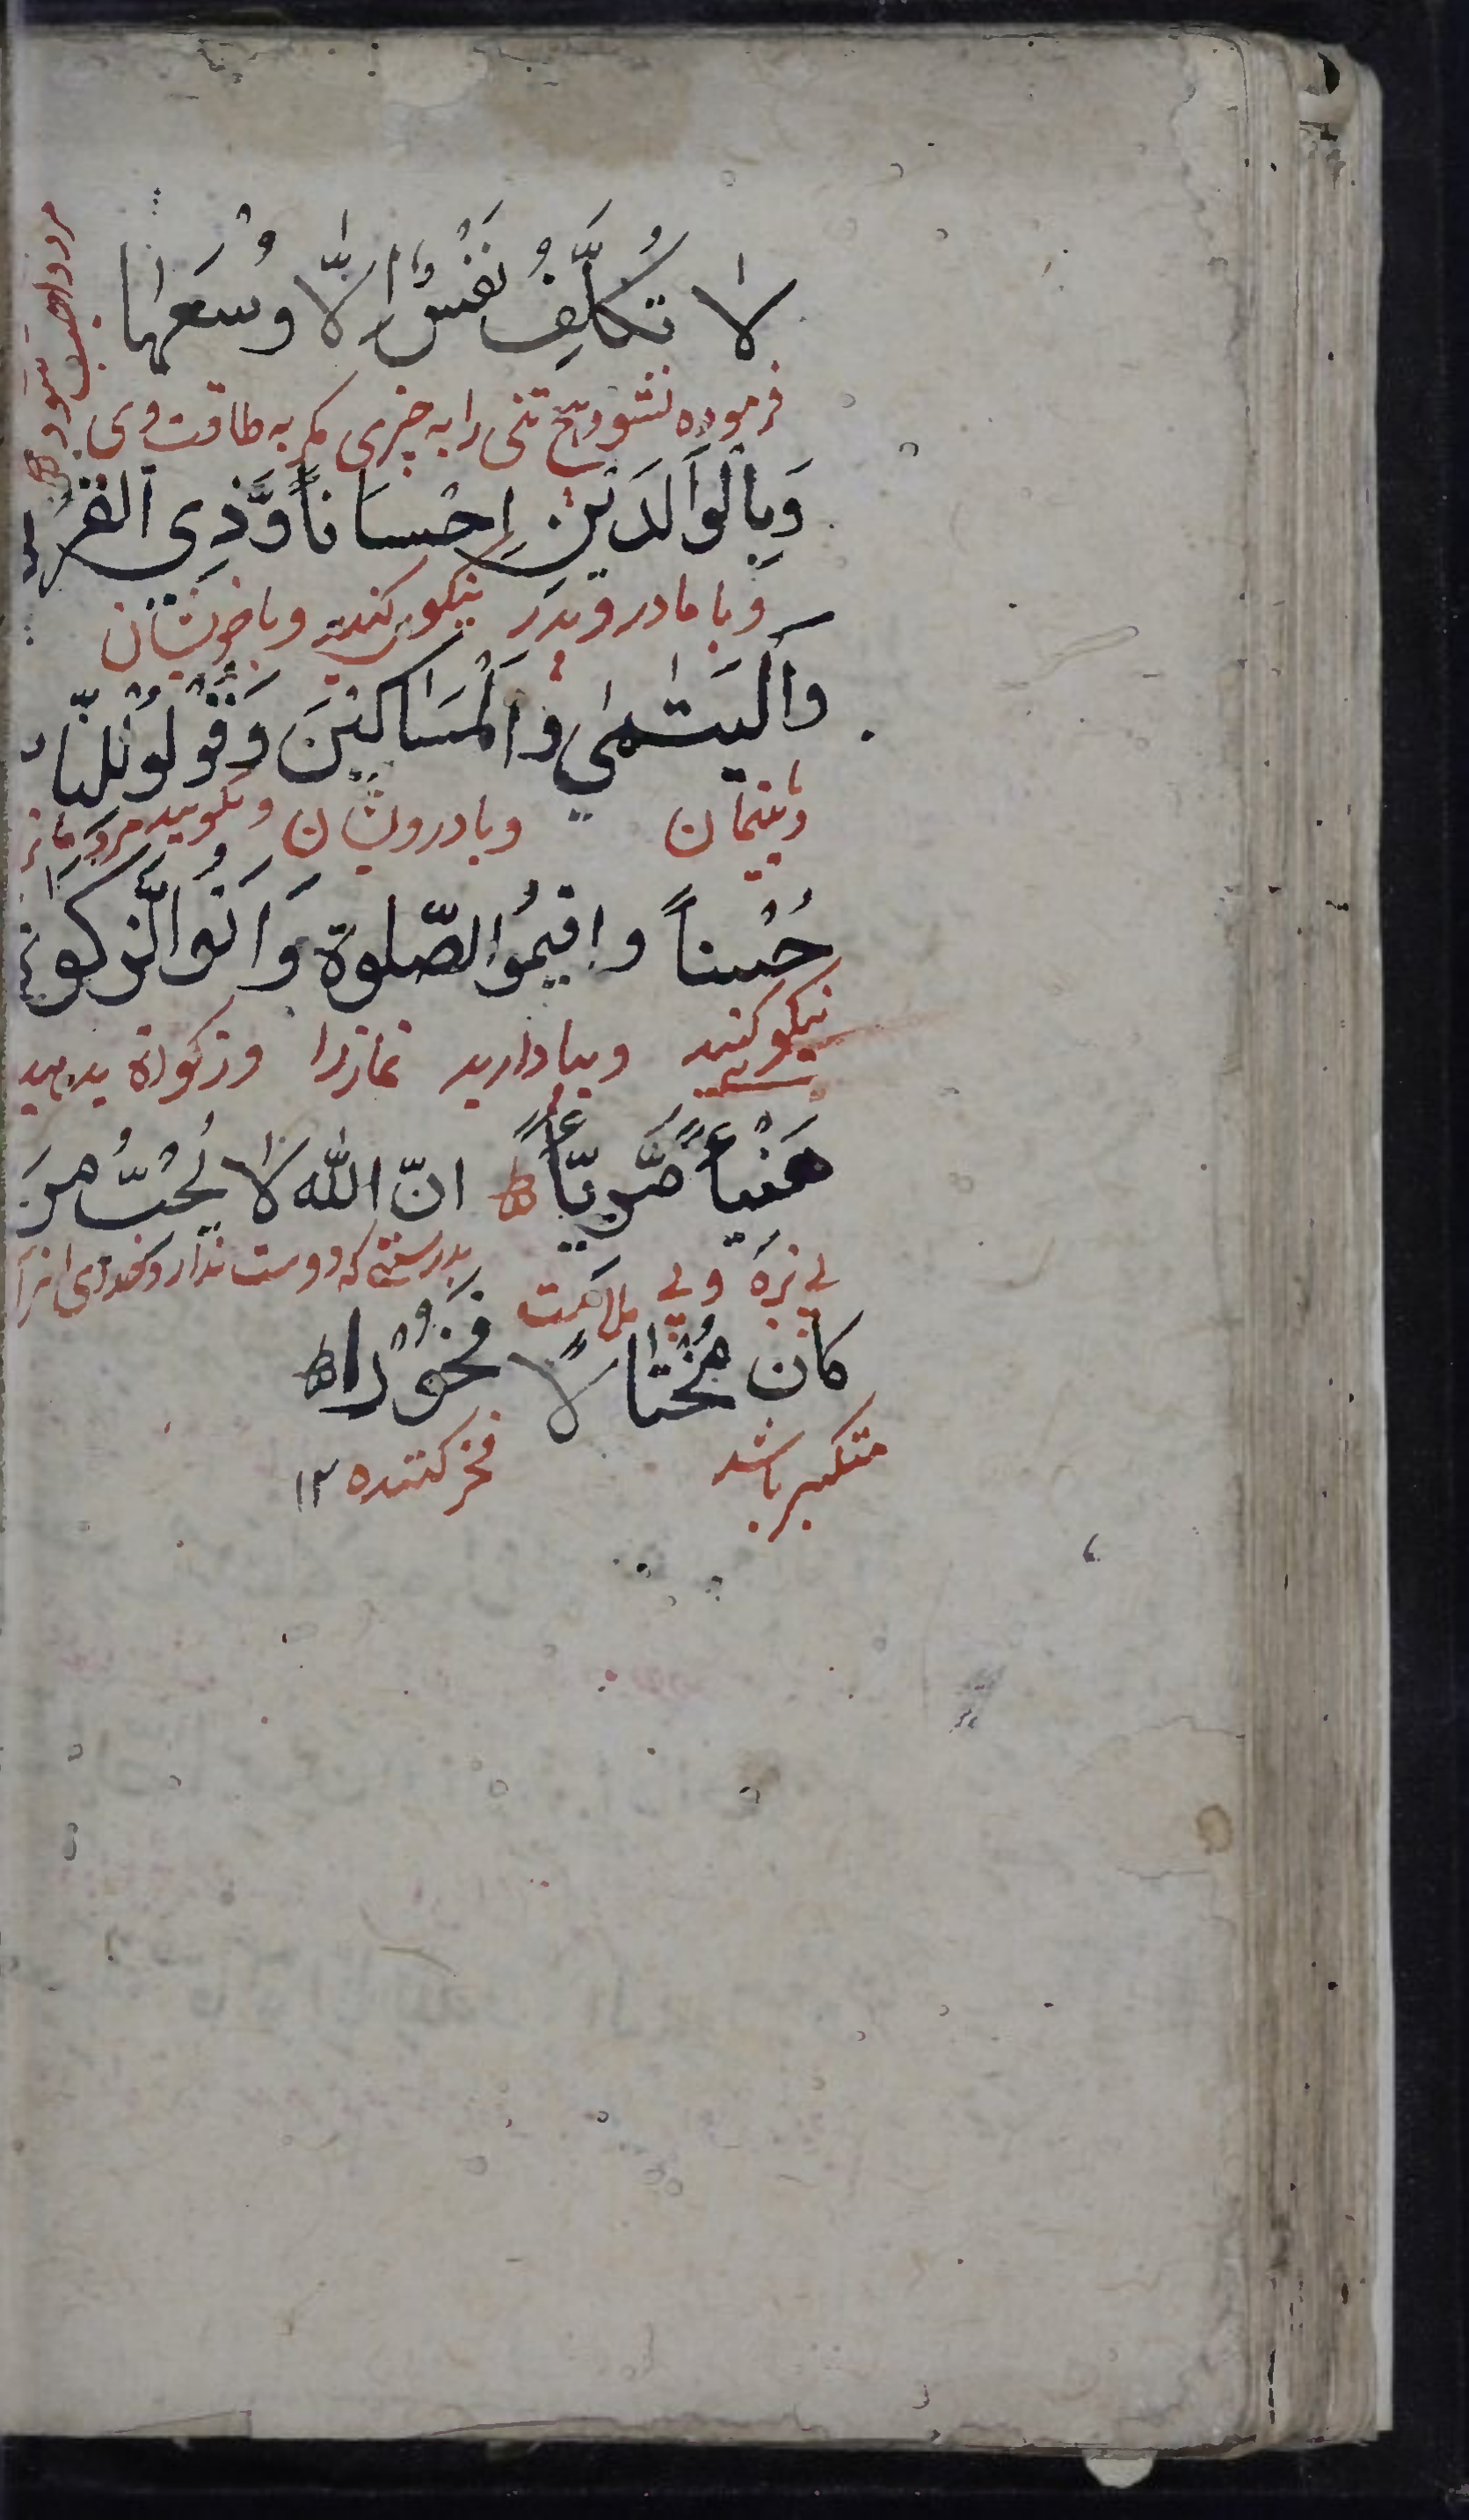 لَا تُكَلَّفُ نَفْسٌ اِلَّا وُسْعَهَا
فرموده نشود هیچ تنی را به چیزی مگر به طاقت وی
مرد واجب شود
وَبِالْوَالِدَيْنِ اِحْسَانًا وَّذِي الْقُرْبٰى
وبا مادر و پدر نیکویی کنید وبا خویشان
وَالْيَتٰمٰي وَالْمَسَاكِيْنَ وَقُوْلُوْا لِلنَّاسِ
ویتیمان وبا درویشان وبگویید مردمانرا
حُسْناً واقيمُوا الصّلوة وَاتُوا الزَّكٰوة
نیکو کنید وبپا دارید نمازرا وزکواة بدهید
هَنْيئاً مَّرِيّئاً انّ اللّٰه لَا يُحْبُّ مَنْ
بی بزه وبی ملامت بدرستی که دوست ندارد خدای انرا
كَانَ مُخْتَالًا فَخُوْرًا
متکبر باشد فخر کننده ١٢